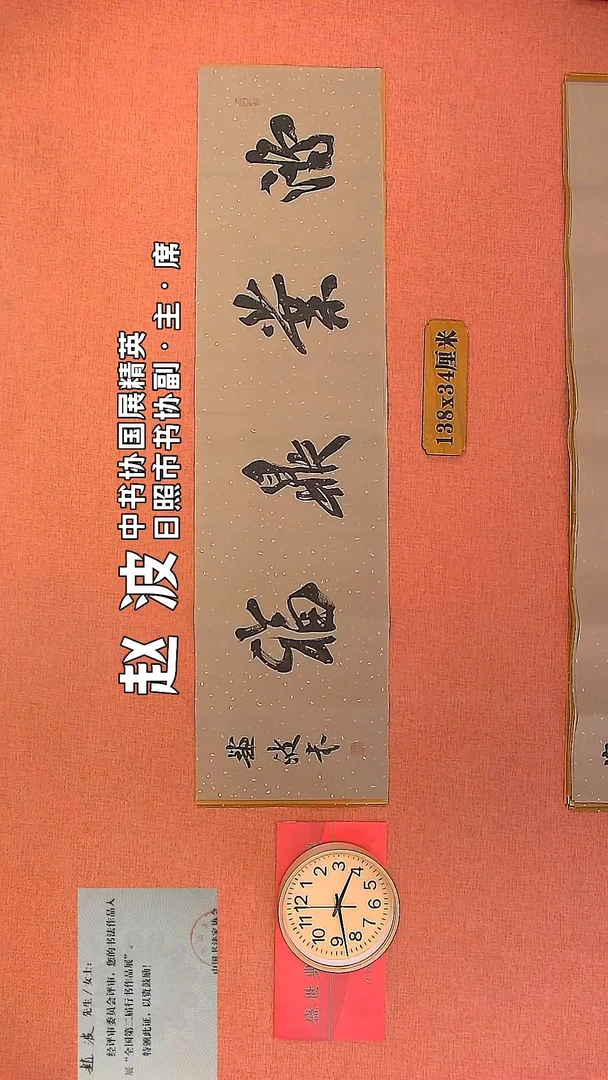 赵波 中书协国展精英
日照市书协副·主·席
業鼎福
138x34厘米
赵波 先生／女士：
经评审委员会评审，您的书法作品入
展“全国第二届行书作品展”。
特颁此证，以资鼓励！
12
1
2
3
4
5
6
7
8
9
10
11